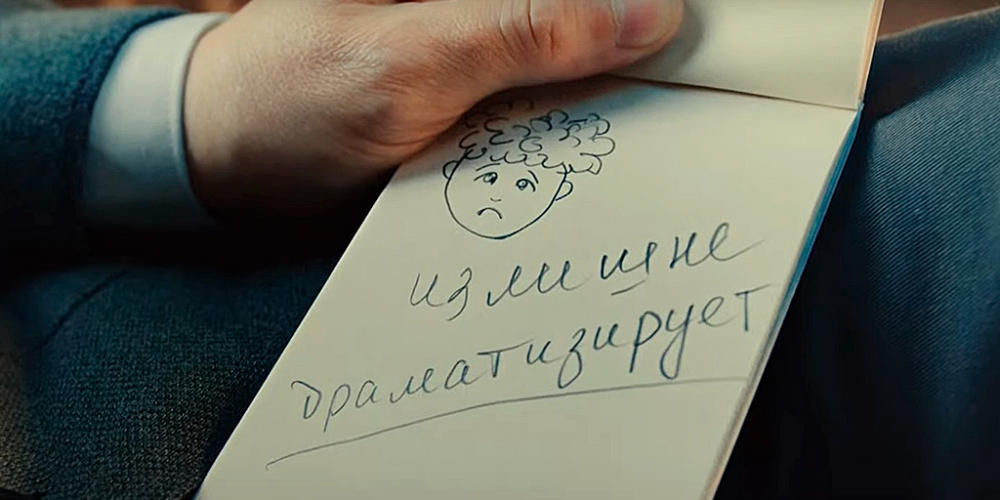 излишне
драматизирует